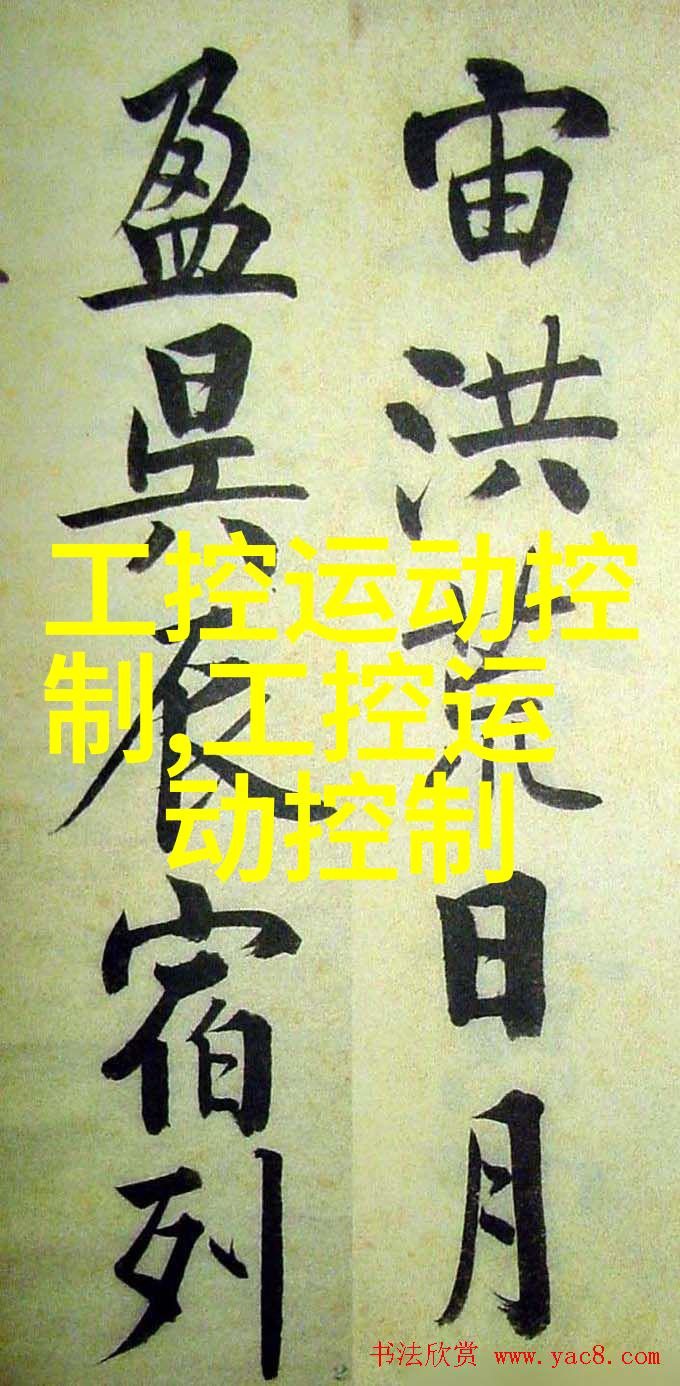 宙洪荒日月
盈昃辰宿列
工控运动控
制,工控运
动控制
书法欣赏 www.yac8.com